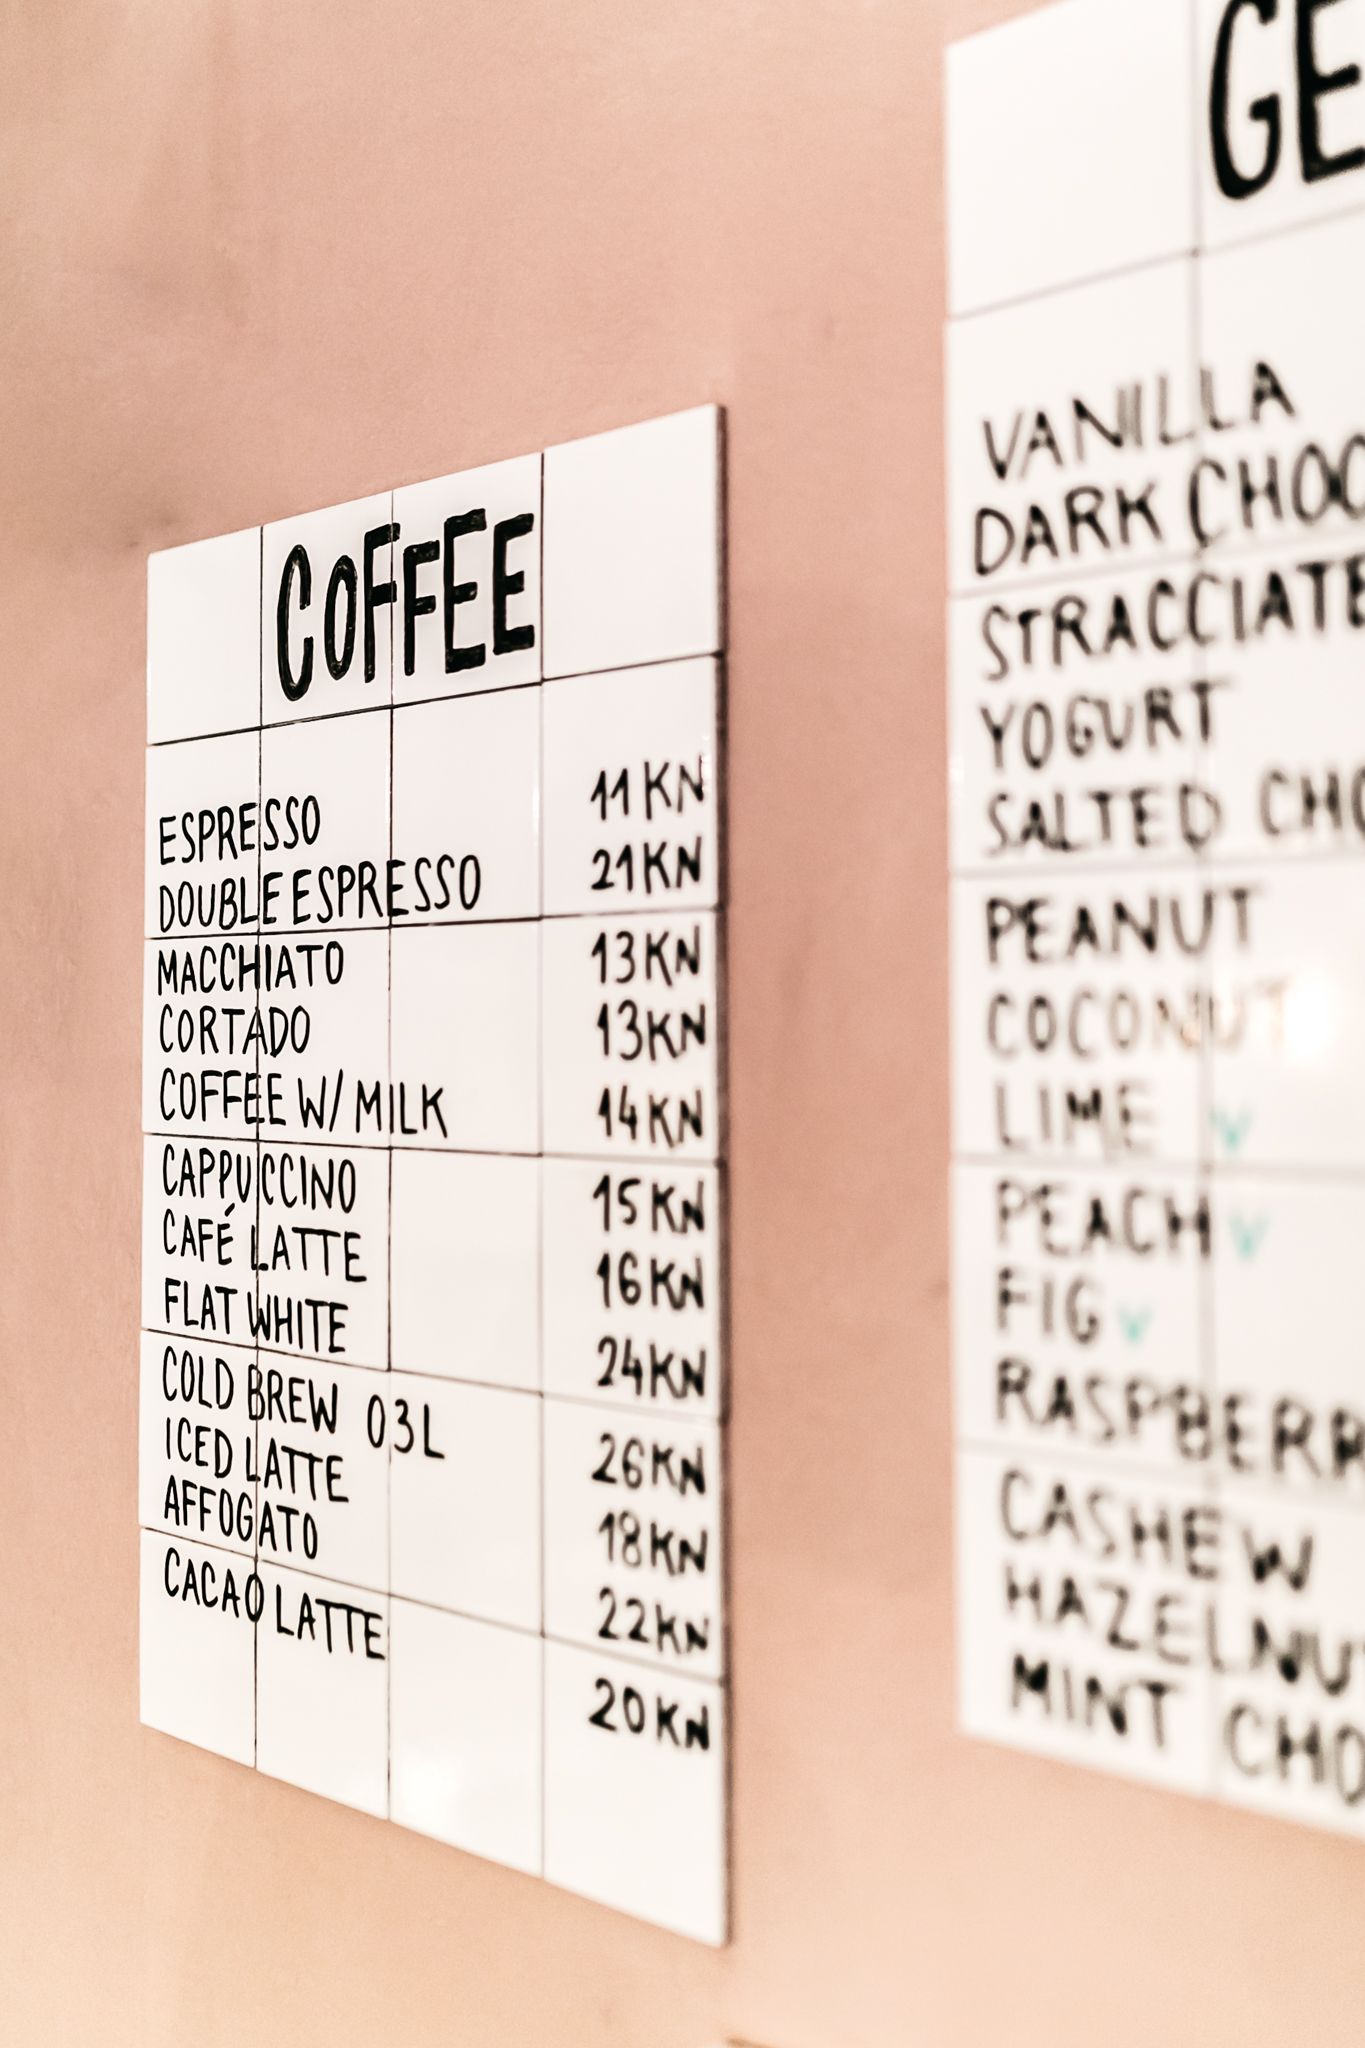 COFFEE
ESPRESSO 11 KN
DOUBLE ESPRESSO 21 KN
MACCHIATO 13 KN
CORTADO 13 KN
COFFEE W/ MILK 14 KN
CAPPUCCINO 15 KN
CAFÉ LATTE 16 KN
FLAT WHITE 24 KN
COLD BREW 03L 26 KN
ICED LATTE 18 KN
AFFOGATO 22 KN
CACAO LATTE 20 KN
GE
VANILLA
DARK CHOC
STRACCIATE
YOGURT
SALTED CHO
PEANUT
COCONUT
LIME V
PEACH V
FIG V
RASPBERR
CASHEW
HAZELNUT
MINT CHO